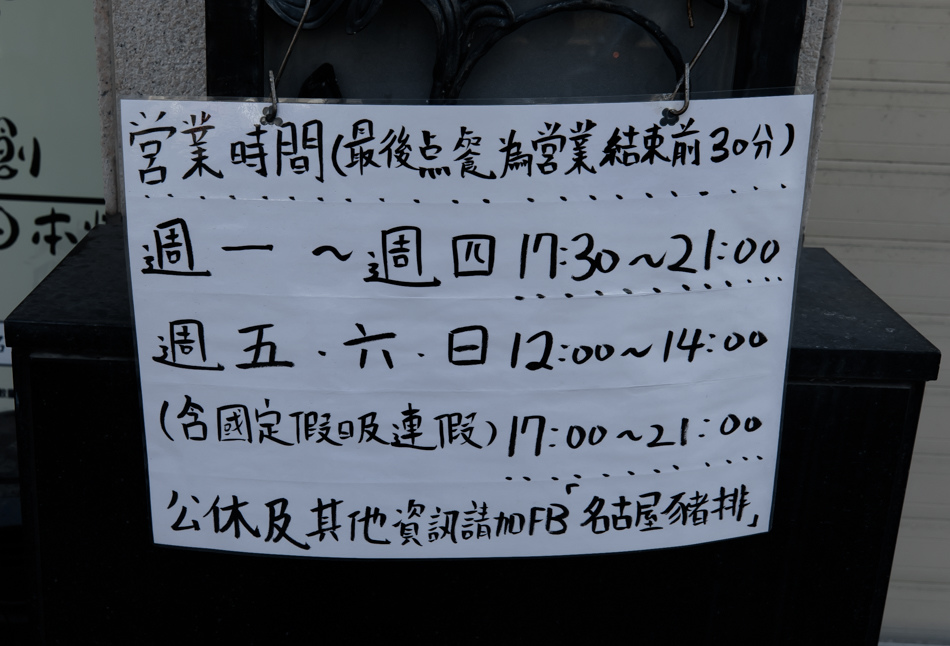 営業時間(最後点餐為営業結束前30分)
週一～週四 17:30～21:00
週五.六.日 12:00～14:00
(含國定假日及連假) 17:00～21:00
公休及其他資訊請加FB「名古屋豬排」
創
日本料